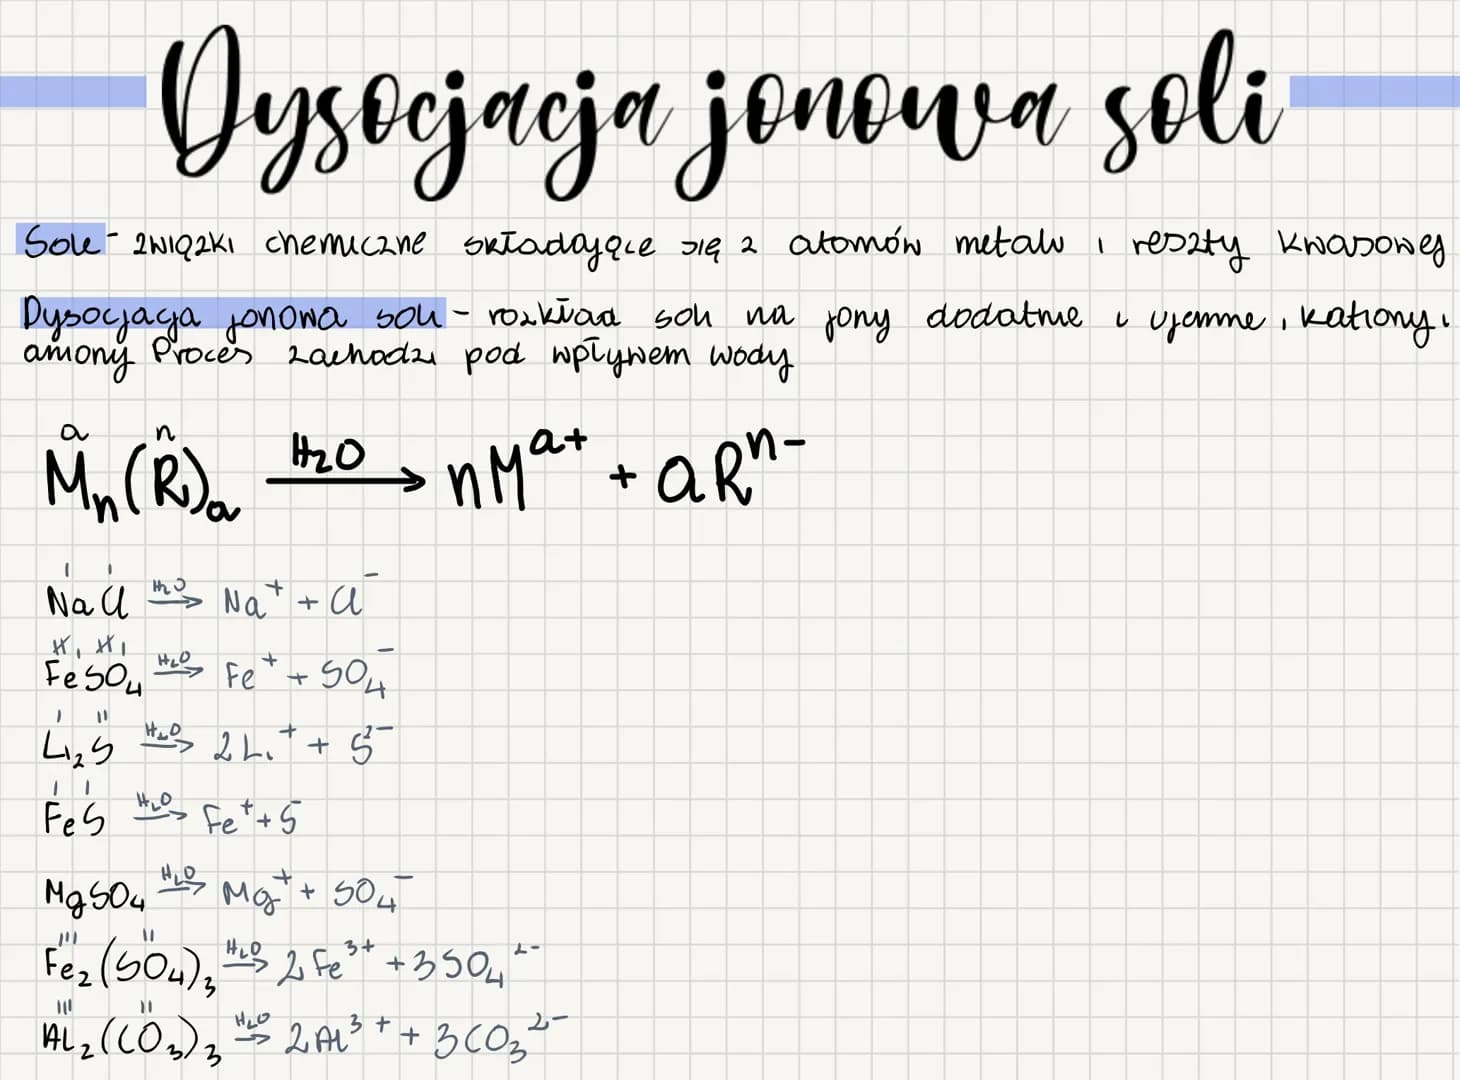 Dysocjacja jonowa soli
Sole - związki chemiczne składające się z atomów metalu i reszty kwasowej
Dysocjacja jonowa soli - rozkład soli na jony dodatnie i ujemne, kationy i
aniony Proces zachodzi pod wpływem wody
a n
Mₙ(R)ₐ H₂O → nMᵃ⁺ + aRⁿ⁻
I I
NaCl H₂O → Na⁺ + Cl⁻
II I II I
FeSO₄ H₂O → Fe⁺ + SO₄⁻
I II
Li₂S H₂O → 2Li⁺ + S²⁻
I I
FeS H₂O → Fe⁺ + S⁻
MgSO₄ H₂O → Mg⁺ + SO₄⁻
III II
Fe₂(SO₄)₃ H₂O → 2Fe³⁺ + 3SO₄²⁻
III II
Al₂(CO₃)₃ H₂O → 2Al³⁺ + 3CO₃²⁻